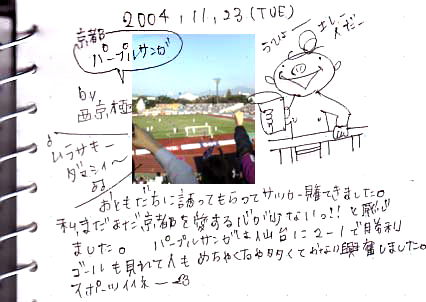 2004.11.23(TUE)
京都
パープルサンガ
by
西京極
ムラサキー
ダマシィ〜
おともだちに誘ってもらってサッカー観てきました。
私、まだまだ京都を愛する
ました。 パープルサンガは仙台に2-1で勝利
ゴールも見れて人もめちゃくちゃ多くて 興奮しました。
スポーツイイネー